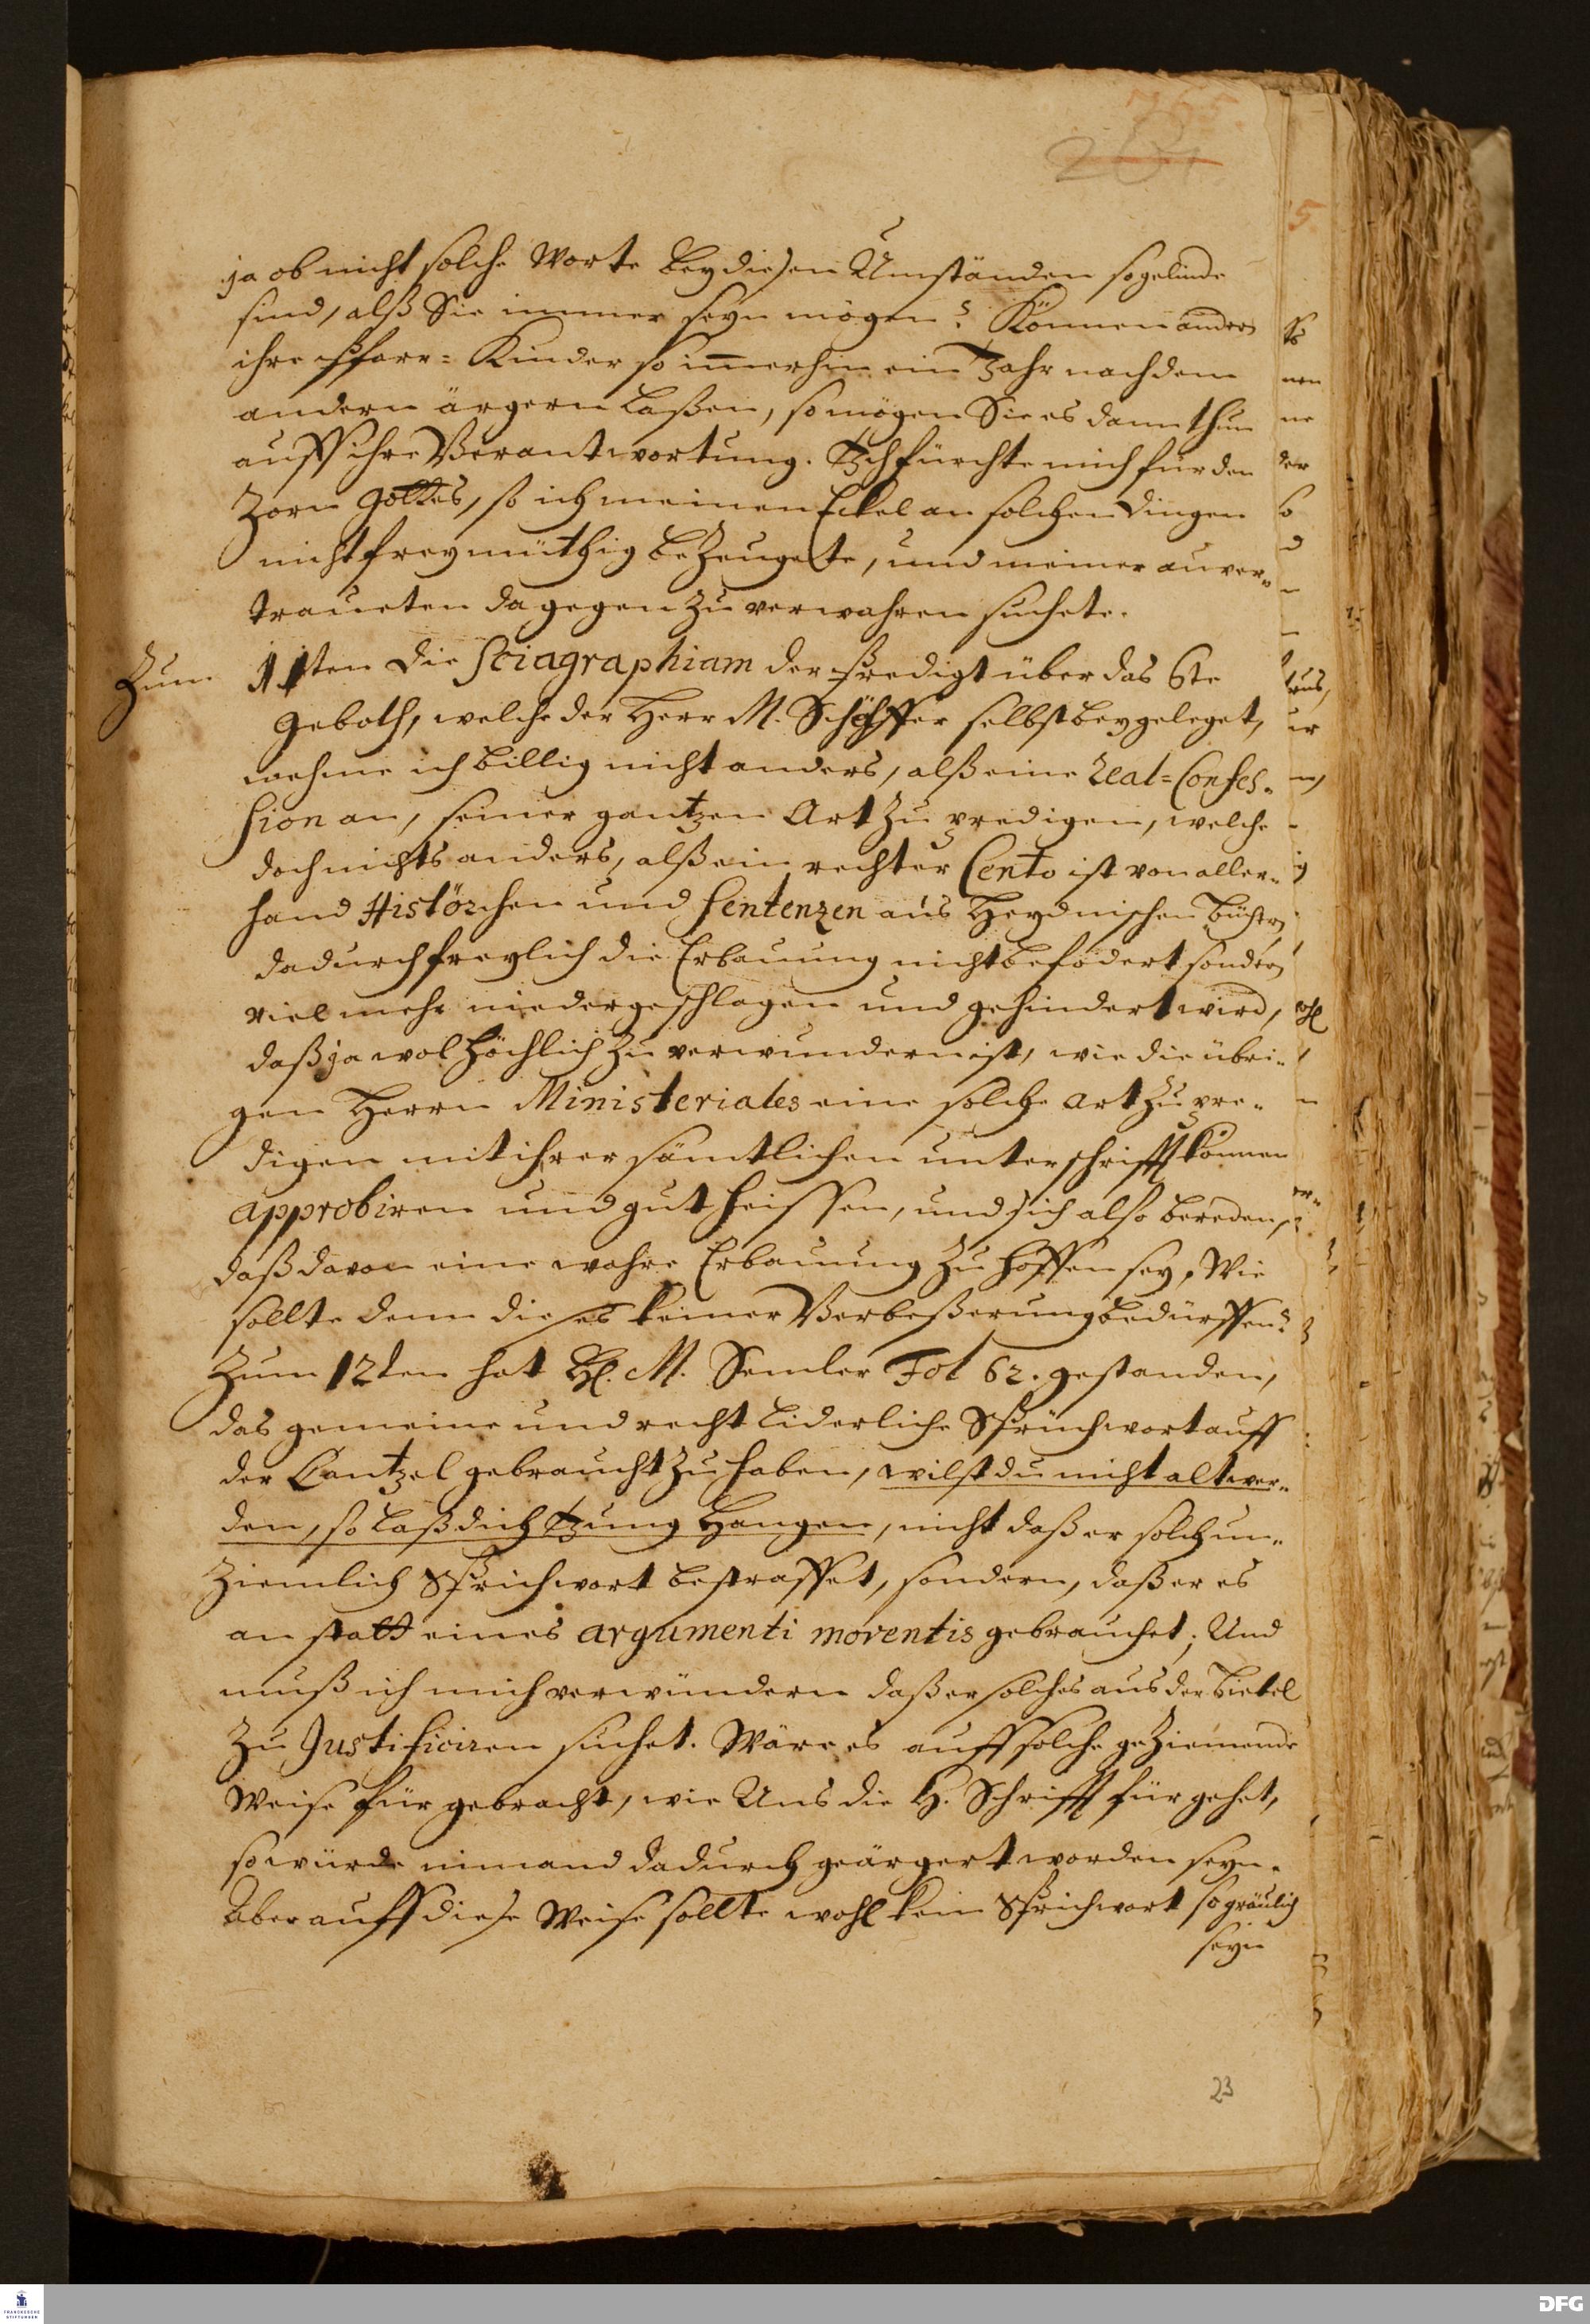 765.
201
ja ob nicht solche Worte bey diesen Umständen so gelinde
sind, alß Sie immer seyn mögen? Können andere
ihre Pfarr-Kinder so immerhin ein Jahr nach dem
andern ärgern laßen, so mögen Sie es dann thun
auff ihre Verantwortung. Ich fürchte mich für den
Zorn Gottes, so ich meinen Eckel an solchen Dingen
nicht freymüthig bezeugete, und meine anver-
traueten dagegen zu verwahren suchete.
Zum 11ten Die Sciagraphiam der Predigt über das 6te
Geboth, welche der Herr M. Schäffer selbst beygeleget,
nehme ich billig nicht anders, alß eine Real-Confes-
sion an, seiner gantzen Art zu predigen, welche
doch nichts anders, alß ein rechter Cento ist von aller-
hand Histörchen und Sentenzen aus Heydnischen Büchern,
dadurch freylich die Erbauung nicht befödert sondern
vielmehr niedergeschlagen und gehindert wird,
daß ja wol höchlich zu verwundern ist, wie die übri-
gen Herrn Ministeriales eine solche Art zu pre-
digen mit ihrer sämtlichen unterschrifft können
approbiren und gut heissen, und sich also bereden,
daß davon eine wahre Erbauung zu hoffen sey, Wie
sollte denn dieses keiner Verbeßerung bedürffen?
Zum 12ten hat H. M. Semler Fol 62. gestanden,
das gemeine und recht liderliche Sprüchwort auff
der Cantzel gebraucht zu haben, wilst du nicht alt wer-
den, so laß dich Jung Hangen, nicht daß er solch un-
ziemlich Sprichwort bestraffet, sondern, daß er es
an statt eines argumenti moventis gebrauchet; Und
muß ich mich verwundern daß er solches aus der Bibel
zu Justificiren suchet. Wäre es auff solche geziemende
Weise für gebracht, wie Uns die H. Schrifft für gehet,
so würde nimand dadurch geärgert worden seyn.
Aber auff diese Weise sollte wohl kein Sprichwort so gräulich
seyn
23
FRANCKESCHE
STIFTUNGEN
DFG